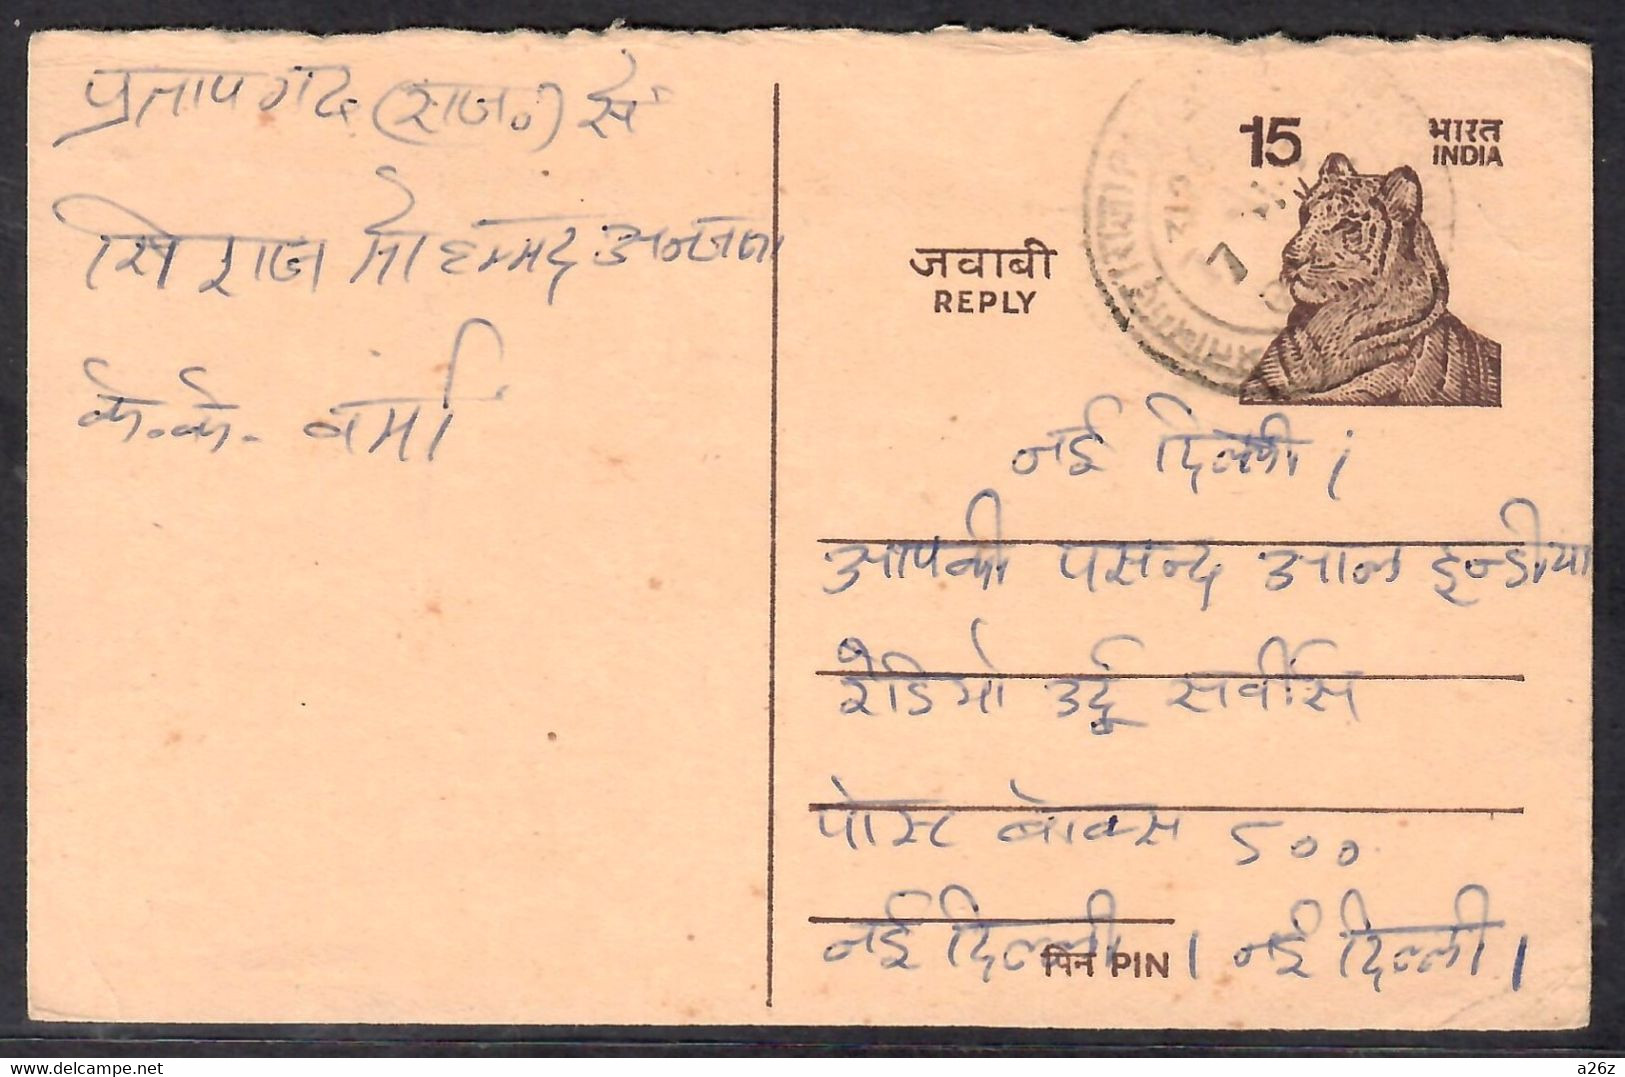 प्रतापगढ (राज॰) से
सिराज मोहम्मद अन्जाना
के.के. वर्मा
15
भारत
INDIA
जवाबी
REPLY
नई दिल्ली ।
आपकी पसन्द आल इन्डीया
रेडियो उर्दू सर्वीस
पोस्ट बोक्स ५००
नई दिल्ली । नई दिल्ली ।
पिन PIN
delcampe.net
a26z